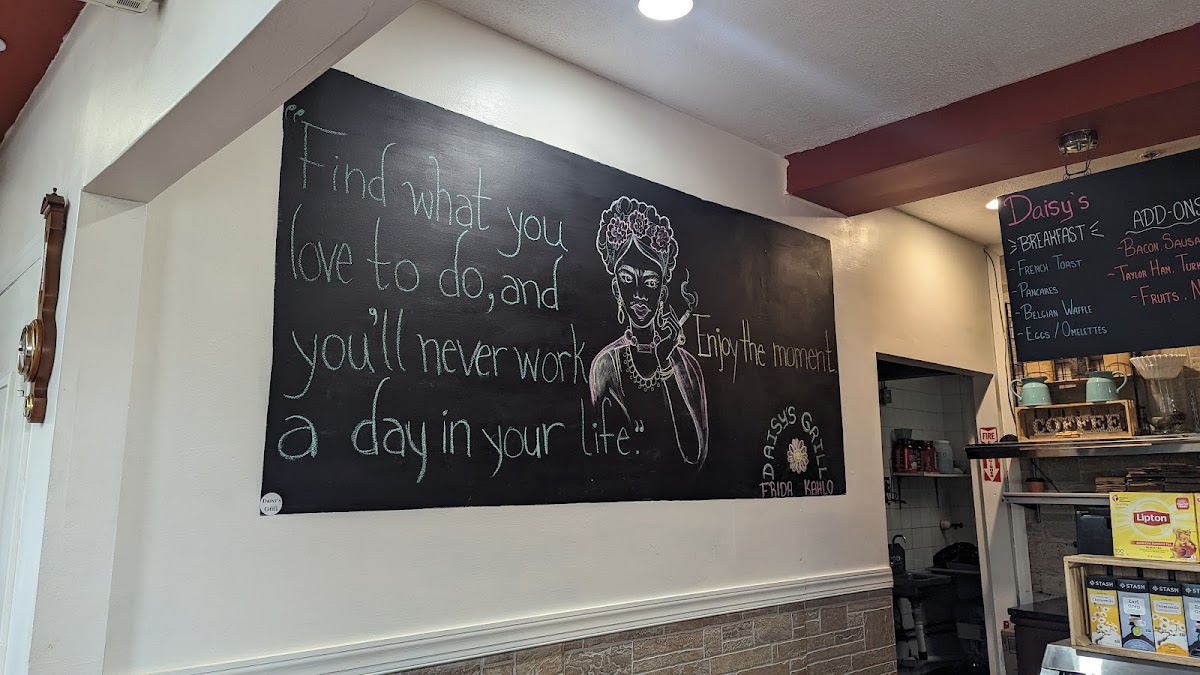 "Find what you
love to do, and
you'll never work
a day in your life."
Enjoy the moment
DAISY'S GRILL
FRIDA KAHLO
Daisy's
Grill
Daisy's
BREAKFAST
- FRENCH TOAST
- PANCAKES
- BELGIAN WAFFLE
- EGGS / OMELETTES
ADD-ONS
- BACON SAUSA
- TAYLOR HAM, TURK
- FRUITS, N
COFFEE
FIRE
Lipton
100
STASH
STASH
Earl Grey
STASH
STASH